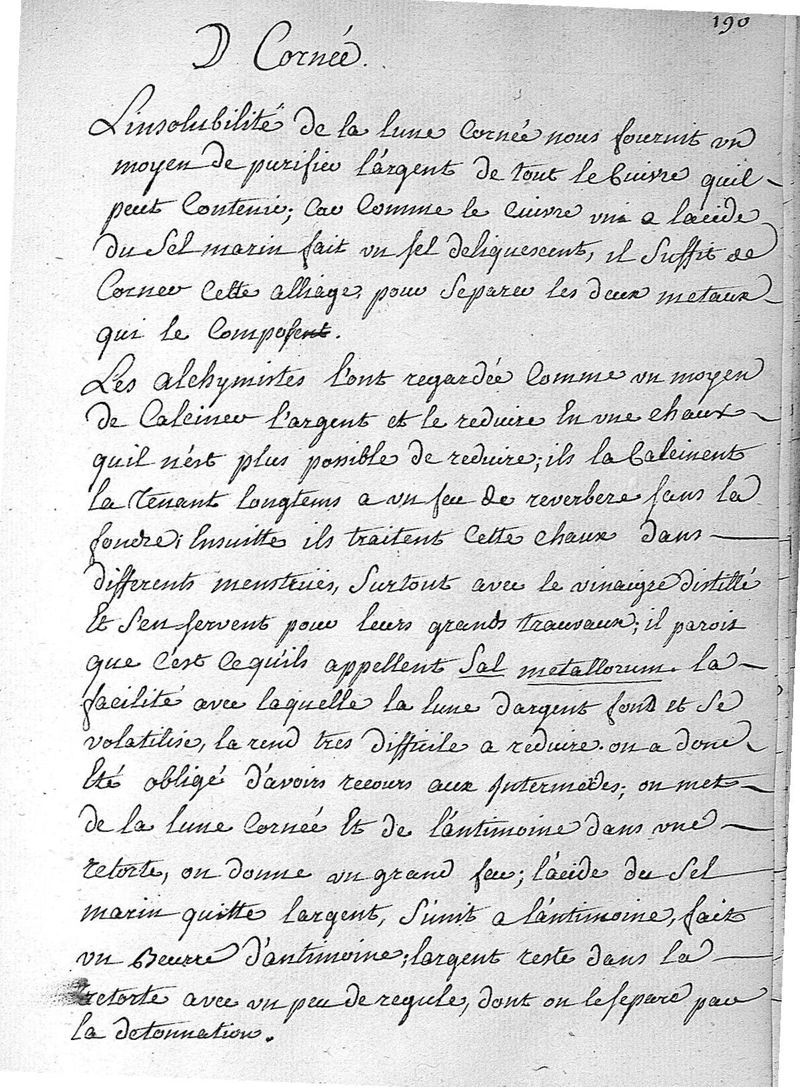 190
☽ Cornée.
L'insolubilité de la lune Cornée nous fournit un
moyen de purifier l'argent de tout le Cuivre quil
peut Contenir; Car Comme le cuivre uni a lacide
du Sel marin fait un sel deliquescent, il Suffit de
Corner Cette alliage, pour Separer les deux metaux
qui le Composent.
Les alchymistes l'ont regardée Comme un moyen
de Calciner l'argent et le reduire En une chaux
quil n'est plus possible de reduire; ils la Calcinent
la Tenant longtems a un feu de reverbere sans la
fondre; Ensuitte ils traitent Cette chaux dans
differents menstrües, Surtout avec le vinaigre distillé
Et S'en servent pour leurs grands travaux; il paroit
que C'est Cequ'ils appellent Sal metallorum. la
facilité avec laquelle la lune d'argent fond et Se
volatilise, la rend tres difficile a reduire. on a donc
Eté obligé d'avoirs recours aux Intermedes; on met
de la lune Cornée Et de l'antimoine dans une
retorte, on donne un grand feu; l'acide du Sel
marin quitte largent, S'unit a l'antimoine, fait
un Beurre d'antimoine; largent reste dans la
retorte avec un peu de regule, dont on le separe par
la detonnation.